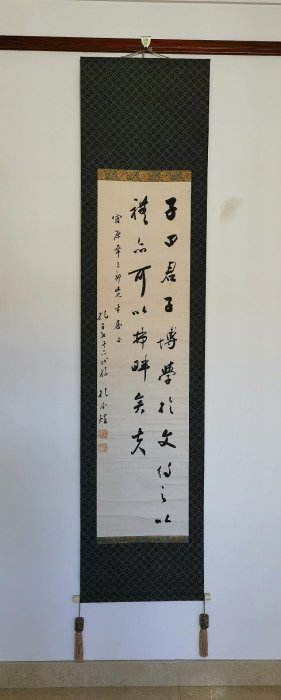 子曰君子博學於文約之以
禮亦可以弗畔矣夫
宮原幸三郎先生屬正
孔子七十六代孫 孔令煌